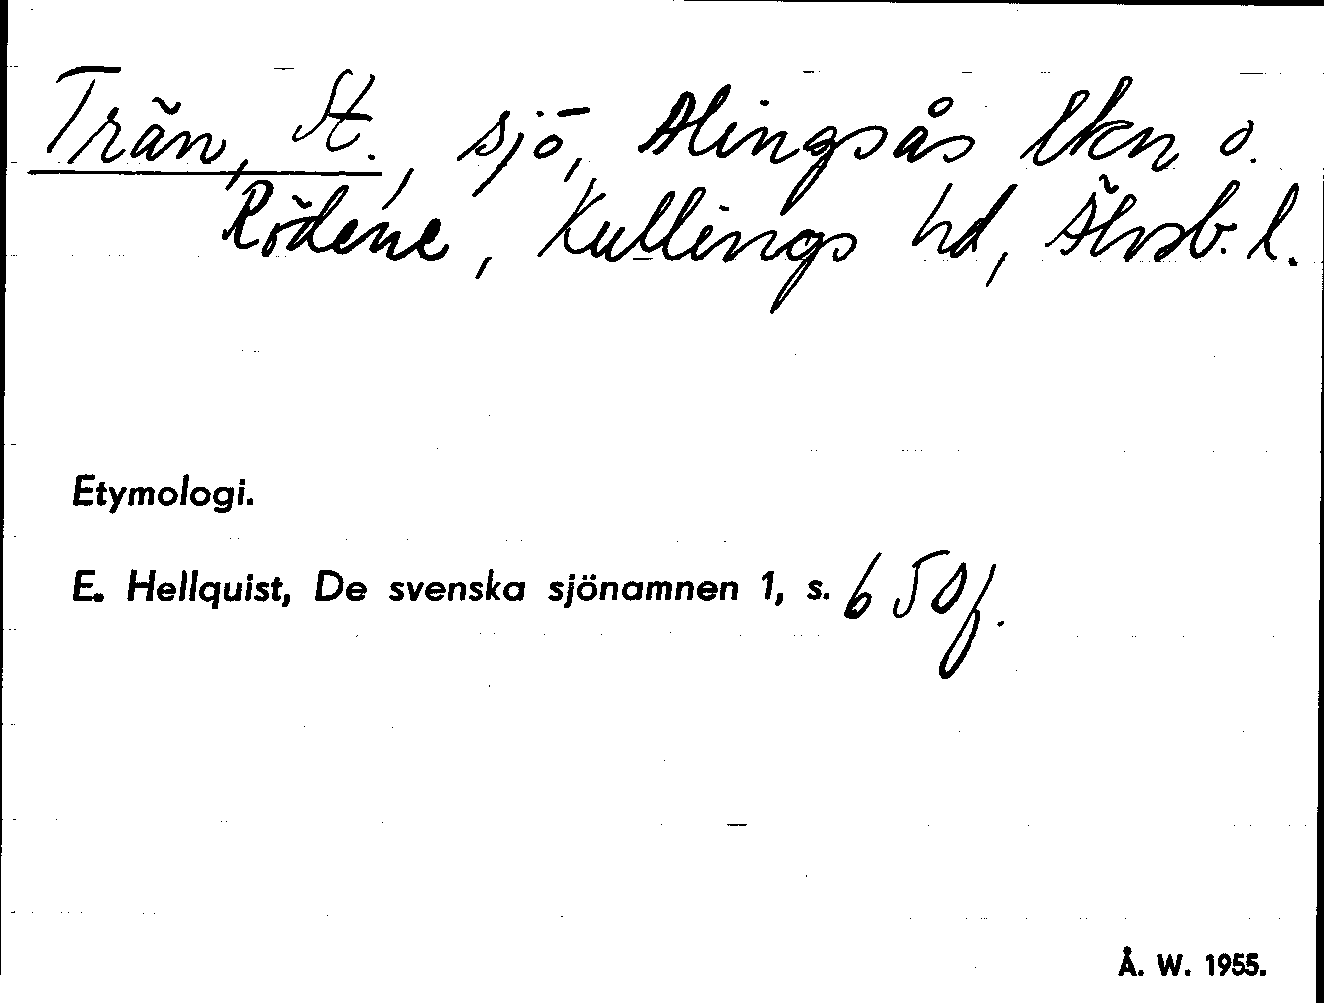 Trän, St., sjö, Alingsås lkn o.
Rödene, Kullings hd, Älvsb. l.
Etymologi.
E. Hellquist, De svenska sjönamnen 1, s. 650f.
Å. W. 1955.